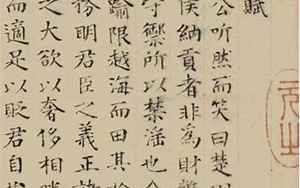 賦
公听然而笑曰楚
侯納貢者非為財
守禦所以禁淫也今
踰限越海而田其於
務明君臣之義正諸
之大欲以奢侈相勝
而適足以貶君自